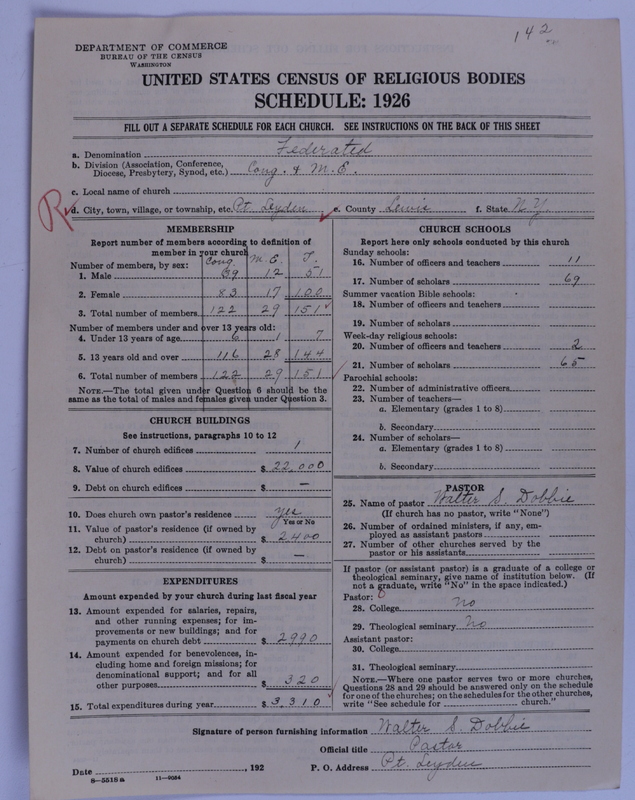 142
DEPARTMENT OF COMMERCE
BUREAU OF THE CENSUS
WASHINGTON
UNITED STATES CENSUS OF RELIGIOUS BODIES
SCHEDULE: 1926
FILL OUT A SEPARATE SCHEDULE FOR EACH CHURCH. SEE INSTRUCTIONS ON THE BACK OF THIS SHEET
a. Denomination Federated
b. Division (Association, Conference,
Diocese, Presbytery, Synod, etc.) Cong. & M. E.
c. Local name of church
R d. City, town, village, or township, etc. Pt. Leyden e. County Lewis f. State N. Y.
MEMBERSHIP
Report number of members according to definition of
member in your church
Number of members, by sex: Cong. M. E. T.
1. Male 39 12 51
2. Female 83 17 100
3. Total number of members 122 29 151
Number of members under and over 13 years old:
4. Under 13 years of age 6 1 7
5. 13 years old and over 116 28 144
6. Total number of members 122 29 151
NOTE.—The total given under Question 6 should be the
same as the total of males and females given under Question 3.
CHURCH BUILDINGS
See instructions, paragraphs 10 to 12
7. Number of church edifices 1
8. Value of church edifices $ 22,000
9. Debt on church edifices $ —
10. Does church own pastor's residence yes
Yes or No
11. Value of pastor's residence (if owned by
church) $ 2400
12. Debt on pastor's residence (if owned by
church) $ —
EXPENDITURES
Amount expended by your church during last fiscal year
13. Amount expended for salaries, repairs,
and other running expenses; for im-
provements or new buildings; and for
payments on church debt $ 2990
14. Amount expended for benevolences, in-
cluding home and foreign missions; for
denominational support; and for all
other purposes $ 320
15. Total expenditures during year $ 3,310
CHURCH SCHOOLS
Report here only schools conducted by this church
Sunday schools:
16. Number of officers and teachers 11
17. Number of scholars 69
Summer vacation Bible schools:
18. Number of officers and teachers
19. Number of scholars
Week-day religious schools:
20. Number of officers and teachers 2
21. Number of scholars 65
Parochial schools:
22. Number of administrative officers
23. Number of teachers—
a. Elementary (grades 1 to 8)
b. Secondary
24. Number of scholars—
a. Elementary (grades 1 to 8)
b. Secondary
PASTOR
25. Name of pastor Walter S. Dobbie
(If church has no pastor, write "None")
26. Number of ordained ministers, if any, em-
ployed as assistant pastors
27. Number of other churches served by the
pastor or his assistants
If pastor (or assistant pastor) is a graduate of a college or
theological seminary, give name of institution below. (If
not a graduate, write "No" in the space indicated.)
Pastor: 0
28. College No
29. Theological seminary No
Assistant pastor:
30. College
31. Theological seminary
NOTE.—Where one pastor serves two or more churches,
Questions 28 and 29 should be answered only on the schedule
for one of the churches; on the schedules for the other churches,
write "See schedule for church."
Signature of person furnishing information Walter S. Dobbie
Official title Pastor
Date , 192 P. O. Address Pt. Leyden
8—5518a 11—9084